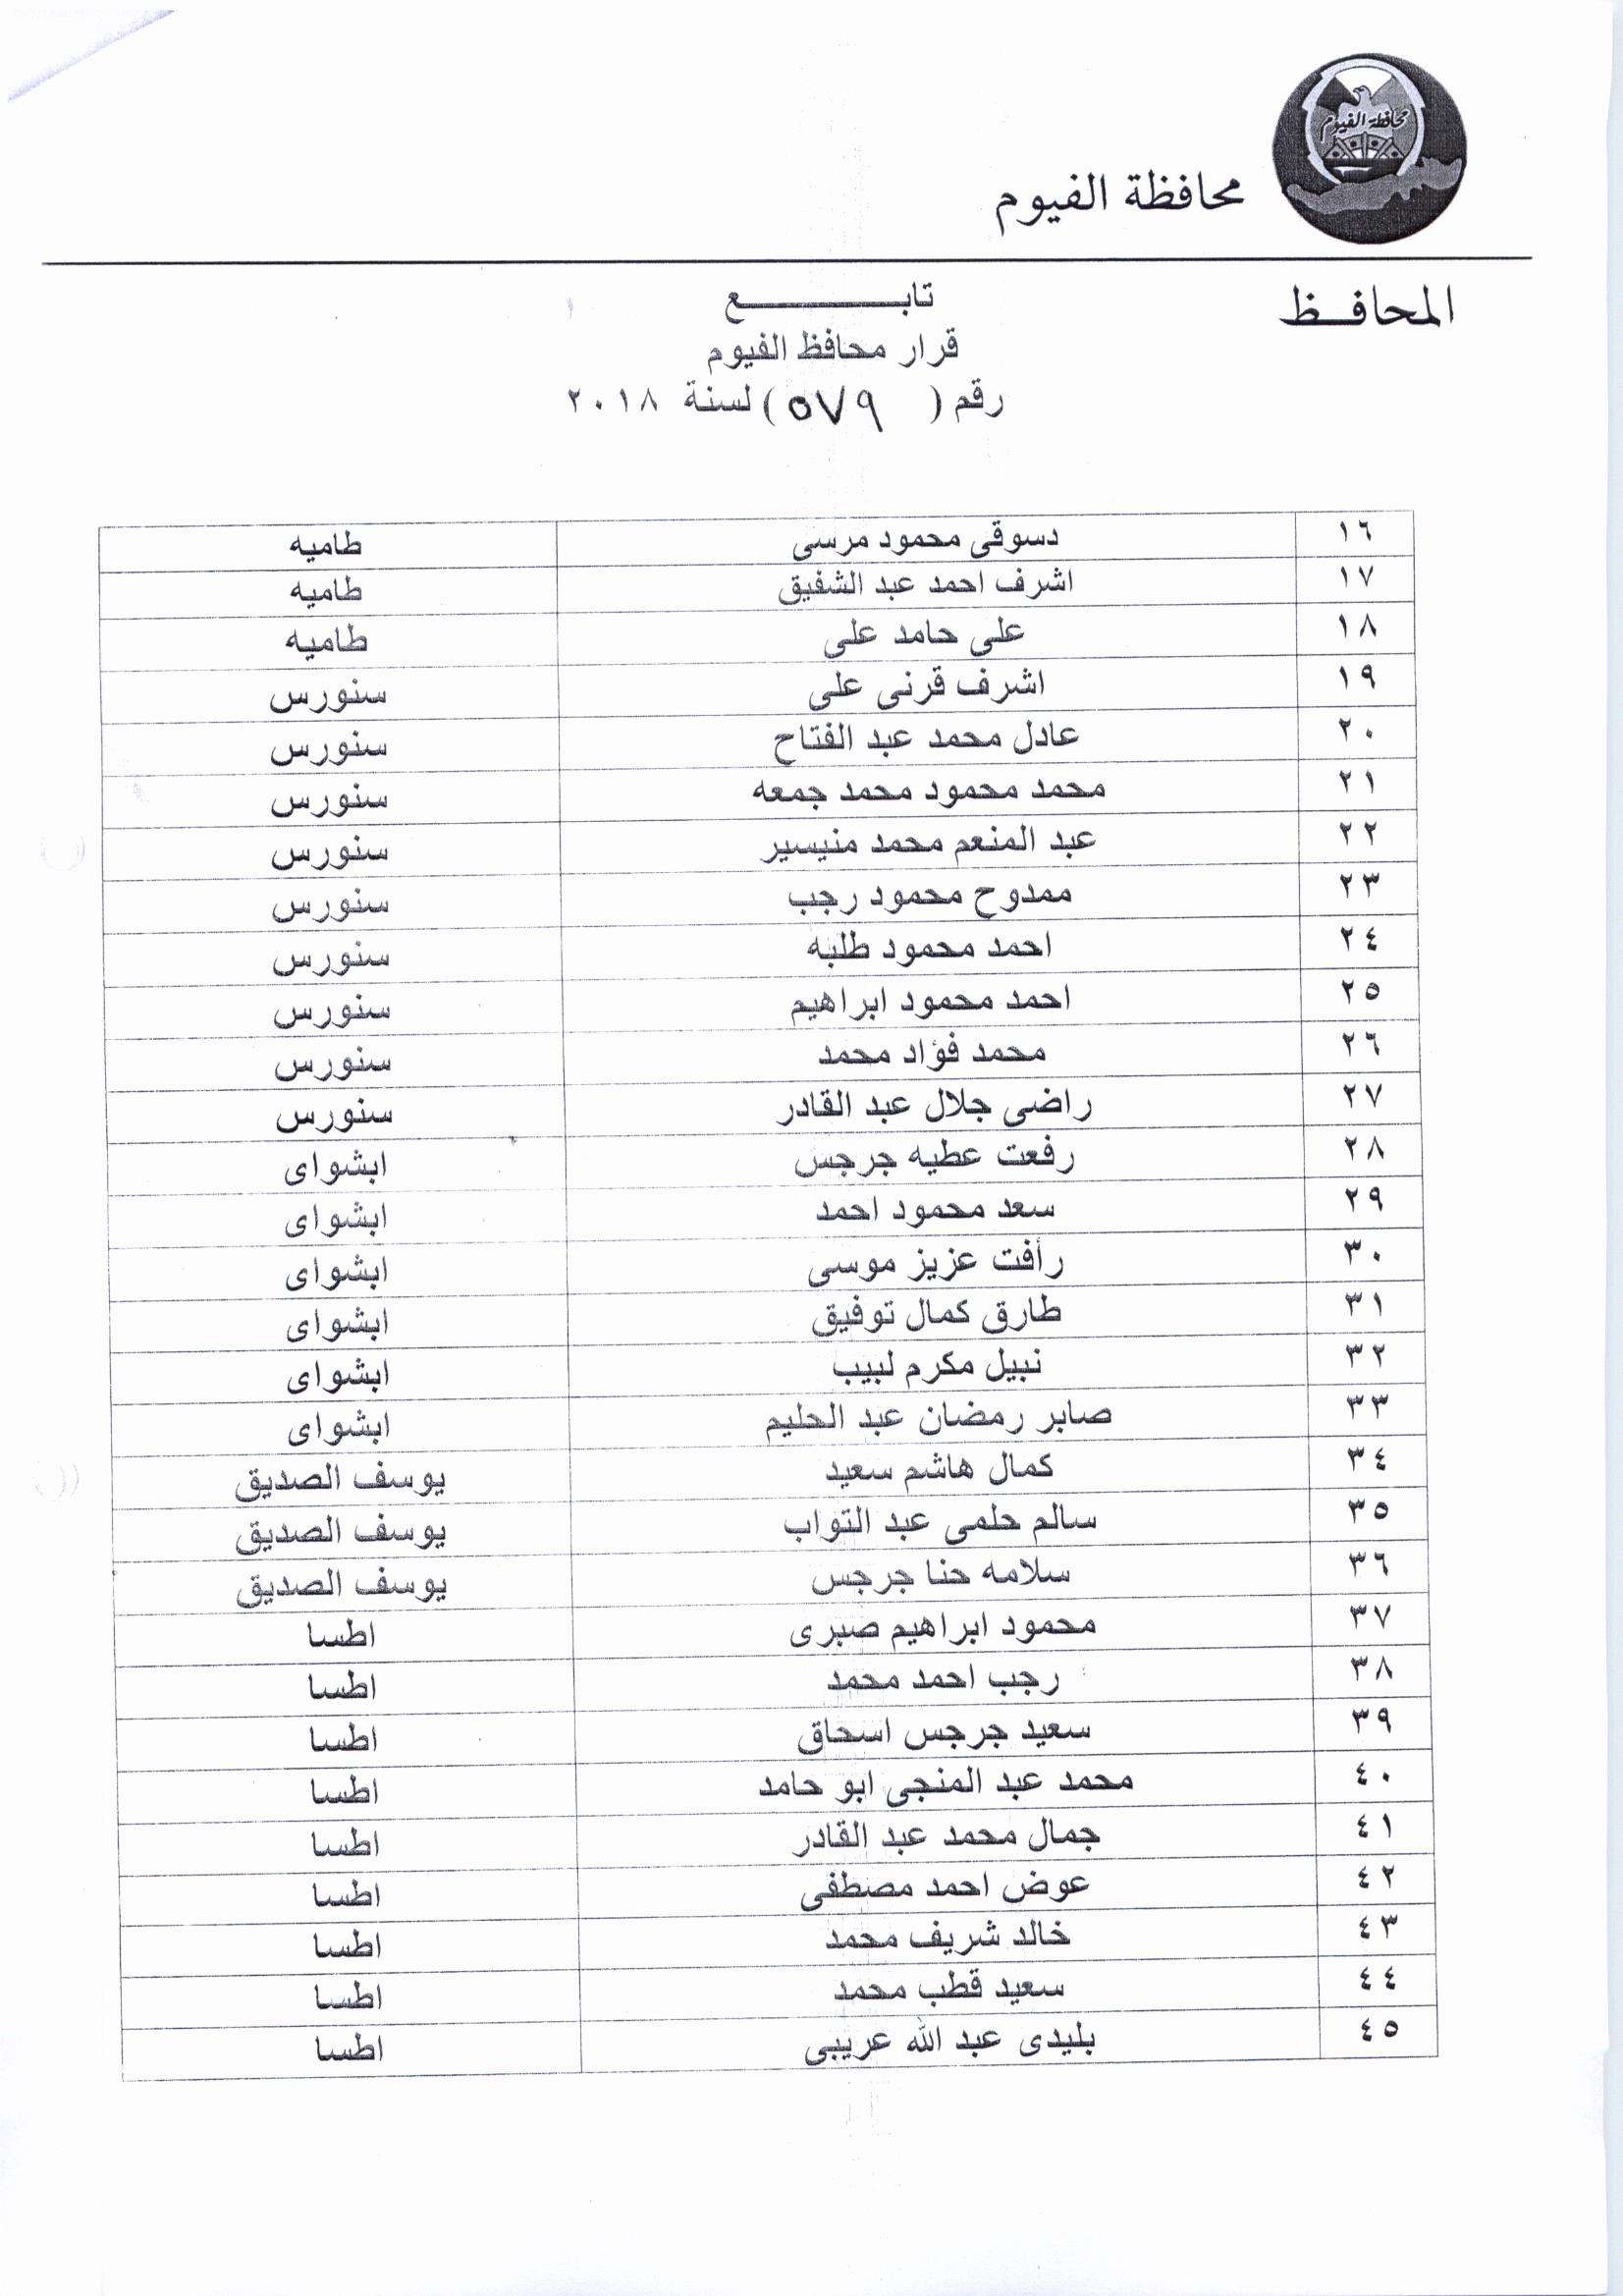 محافظة الفيوم
محافظة الفيوم
المحافـظ
تابـــــــــع
قرار محافظ الفيوم
رقم ( ٥٧٩ ) لسنة ٢٠١٨
١٦ دسوقى محمود مرسى طاميه
١٧ اشرف احمد عبد الشفيق طاميه
١٨ على حامد على طاميه
١٩ اشرف قرنى على سنورس
٢٠ عادل محمد عبد الفتاح سنورس
٢١ محمد محمود محمد جمعه سنورس
٢٢ عبد المنعم محمد منيسير سنورس
٢٣ ممدوح محمود رجب سنورس
٢٤ احمد محمود طلبه سنورس
٢٥ احمد محمود ابراهيم سنورس
٢٦ محمد فؤاد محمد سنورس
٢٧ راضى جلال عبد القادر سنورس
٢٨ رفعت عطيه جرجس ابشواى
٢٩ سعد محمود احمد ابشواى
٣٠ رأفت عزيز موسى ابشواى
٣١ طارق كمال توفيق ابشواى
٣٢ نبيل مكرم لبيب ابشواى
٣٣ صابر رمضان عبد الحليم ابشواى
٣٤ كمال هاشم سعيد يوسف الصديق
٣٥ سالم حلمى عبد التواب يوسف الصديق
٣٦ سلامه حنا جرجس يوسف الصديق
٣٧ محمود ابراهيم صبرى اطسا
٣٨ رجب احمد محمد اطسا
٣٩ سعيد جرجس اسحاق اطسا
٤٠ محمد عبد المنجى ابو حامد اطسا
٤١ جمال محمد عبد القادر اطسا
٤٢ عوض احمد مصطفى اطسا
٤٣ خالد شريف محمد اطسا
٤٤ سعيد قطب محمد اطسا
٤٥ بليدى عبد الله عريبى اطسا